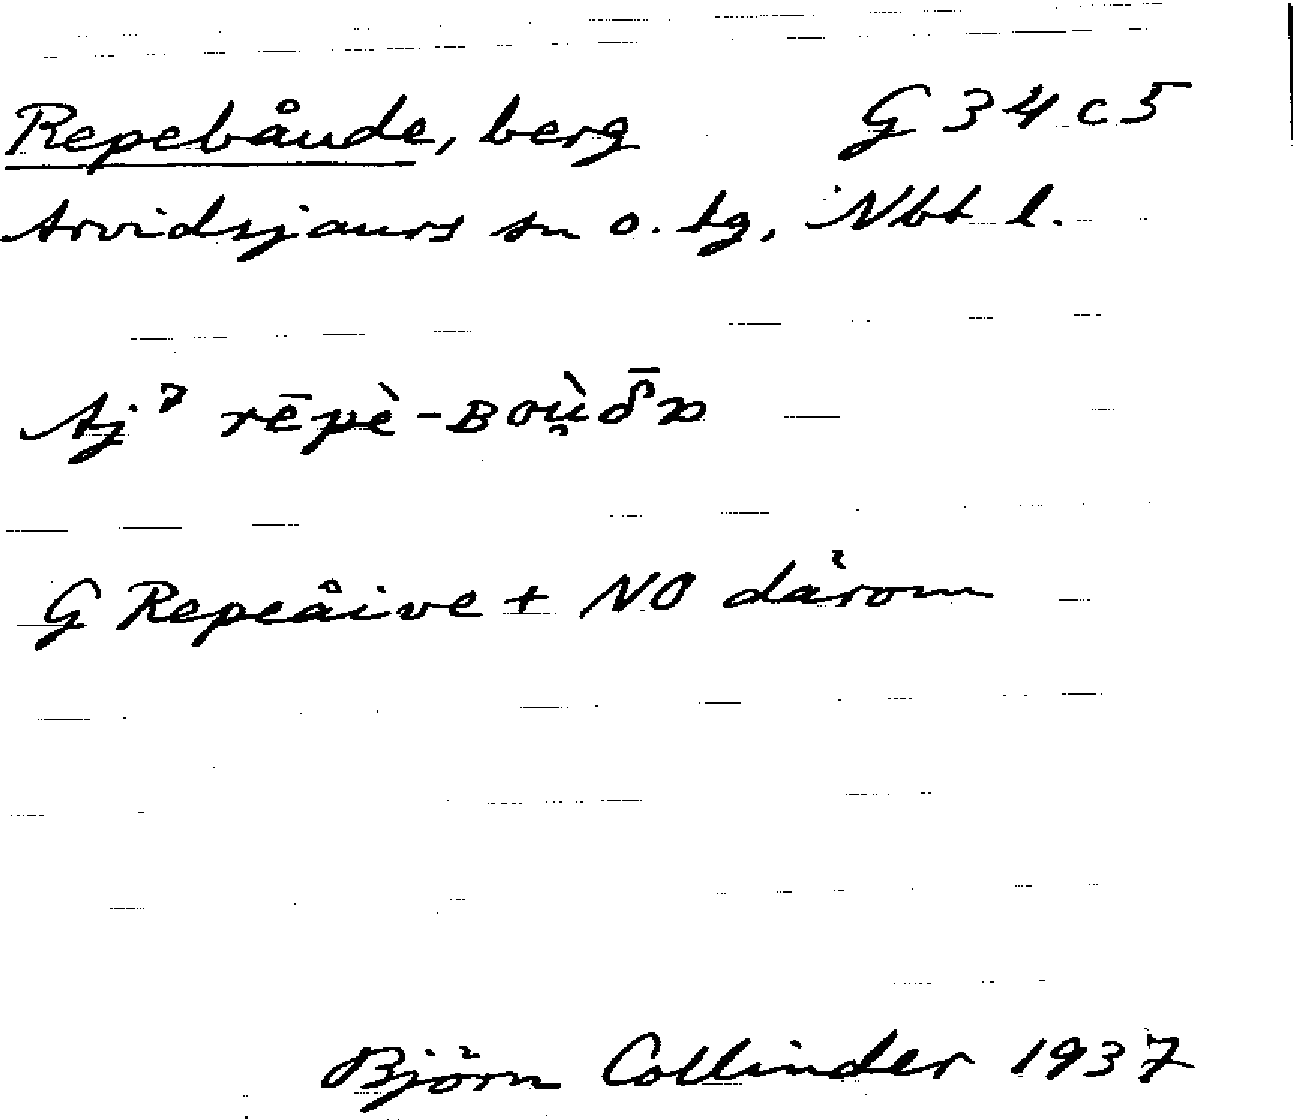 Repebåude, berg G 34 c 5
Arvidsjaurs sn o. tg, Nbt l.
Aj⁷ rēpè-ʙoù̮δ̄ɒ
G Repeåive + NO därom
Björn Collinder 1937